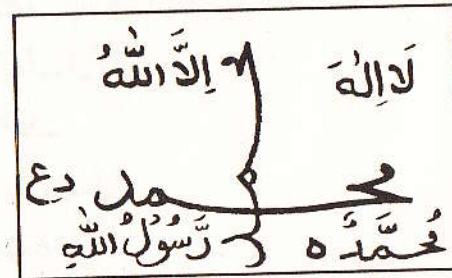 لَا اِلٰهَ اِلَّا اللّٰهُ
محمد دع
مُحَمَّدٌ رَّسُوْلُ اللّٰهِ